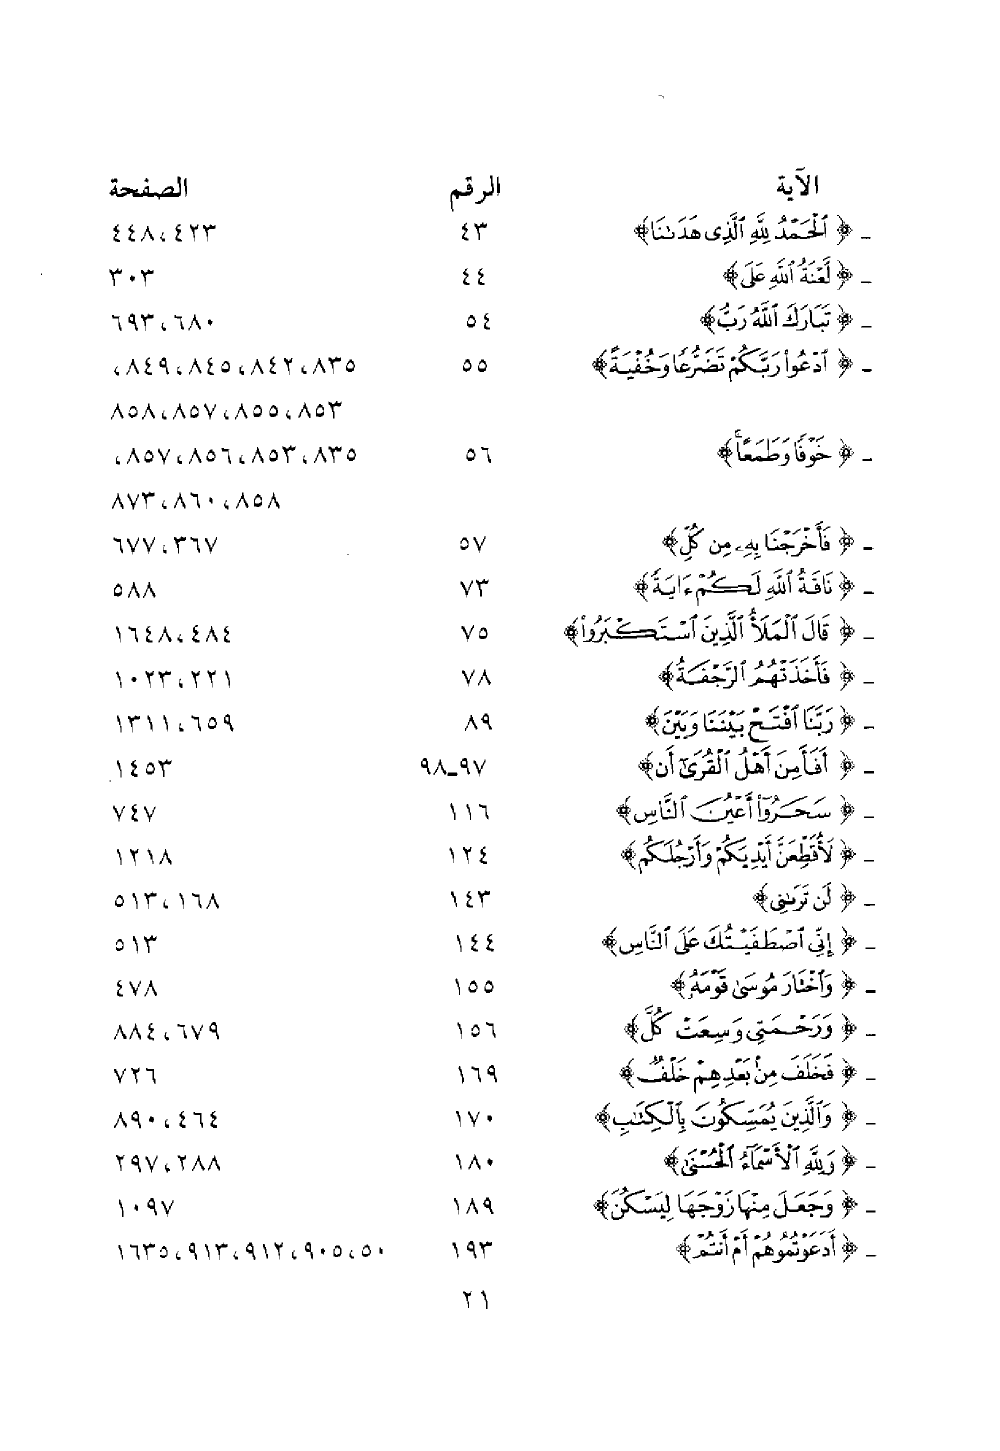 الآية الرقم الصفحة
ـ ﴿ ٱلْحَمْدُ لِلَّهِ ٱلَّذِى هَدَىٰنَا﴾ ٤٣ ٤٢٣، ٤٤٨
ـ ﴿ لَّعْنَةُ ٱللَّهِ عَلَى﴾ ٤٤ ٣٠٣
ـ ﴿ تَبَارَكَ ٱللَّهُ رَبُّ﴾ ٥٤ ٦٨٠، ٦٩٣
ـ ﴿ ٱدْعُوا۟ رَبَّكُمْ تَضَرُّعًا وَخُفْيَةً﴾ ٥٥ ٨٣٥، ٨٤٢، ٨٤٥، ٨٤٩،
٨٥٣، ٨٥٥، ٨٥٧، ٨٥٨
ـ ﴿ خَوْفًا وَطَمَعًا ۚ﴾ ٥٦ ٨٣٥، ٨٥٣، ٨٥٦، ٨٥٧،
٨٥٨، ٨٦٠، ٨٧٣
ـ ﴿ فَأَخْرَجْنَا بِهِۦ مِن كُلِّ﴾ ٥٧ ٣٦٧، ٦٧٧
ـ ﴿ نَاقَةُ ٱللَّهِ لَكُمْ ءَايَةً﴾ ٧٣ ٥٨٨
ـ ﴿ قَالَ ٱلْمَلَأُ ٱلَّذِينَ ٱسْتَكْبَرُوا۟﴾ ٧٥ ٤٨٤، ١٦٤٨
ـ ﴿ فَأَخَذَتْهُمُ ٱلرَّجْفَةُ﴾ ٧٨ ٢٢١، ١٠٢٣
ـ ﴿ رَبَّنَا ٱفْتَحْ بَيْنَنَا وَبَيْنَ﴾ ٨٩ ٦٥٩، ١٣١١
ـ ﴿ أَفَأَمِنَ أَهْلُ ٱلْقُرَىٰٓ أَن﴾ ٩٧ـ٩٨ ١٤٥٣
ـ ﴿ سَحَرُوٓا۟ أَعْيُنَ ٱلنَّاسِ﴾ ١١٦ ٧٤٧
ـ ﴿ لَأُقَطِّعَنَّ أَيْدِيَكُمْ وَأَرْجُلَكُم﴾ ١٢٤ ١٢١٨
ـ ﴿ لَن تَرَىٰنِى﴾ ١٤٣ ١٦٨، ٥١٣
ـ ﴿ إِنِّى ٱصْطَفَيْتُكَ عَلَى ٱلنَّاسِ﴾ ١٤٤ ٥١٣
ـ ﴿ وَٱخْتَارَ مُوسَىٰ قَوْمَهُۥ﴾ ١٥٥ ٤٧٨
ـ ﴿ وَرَحْمَتِى وَسِعَتْ كُلَّ﴾ ١٥٦ ٦٧٩، ٨٨٤
ـ ﴿ فَخَلَفَ مِنۢ بَعْدِهِمْ خَلْفٌ﴾ ١٦٩ ٧٢٦
ـ ﴿ وَٱلَّذِينَ يُمَسِّكُونَ بِٱلْكِتَٰبِ﴾ ١٧٠ ٤٦٤، ٨٩٠
ـ ﴿ وَلِلَّهِ ٱلْأَسْمَآءُ ٱلْحُسْنَىٰ﴾ ١٨٠ ٢٨٨، ٢٩٧
ـ ﴿ وَجَعَلَ مِنْهَا زَوْجَهَا لِيَسْكُنَ﴾ ١٨٩ ١٠٩٧
ـ ﴿ أَدَعَوْتُمُوهُمْ أَمْ أَنتُمْ﴾ ١٩٣ ٥٠، ٩٠٥، ٩١٢، ٩١٣، ١٦٣٥
٢١